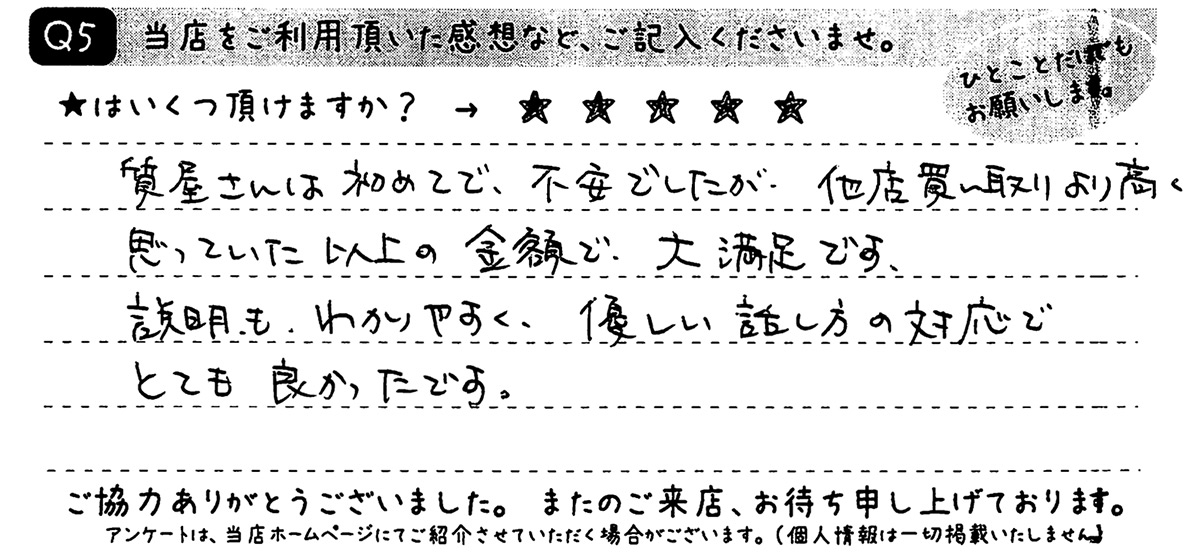 Q5 当店をご利用頂いた感想など、ご記入くださいませ。
ひとことだけでも
お願いします。
★はいくつ頂けますか？ → ☆ ☆ ☆ ☆ ☆
質屋さんは初めてで、不安でしたが、他店買い取りより高く
思っていた以上の金額で、大満足です、
説明も、わかりやすく、優しい話し方の対応で
とても良かったです。
ご協力ありがとうございました。またのご来店、お待ち申し上げております。
アンケートは、当店ホームページにてご紹介させていただく場合がございます。（個人情報は一切掲載いたしません）